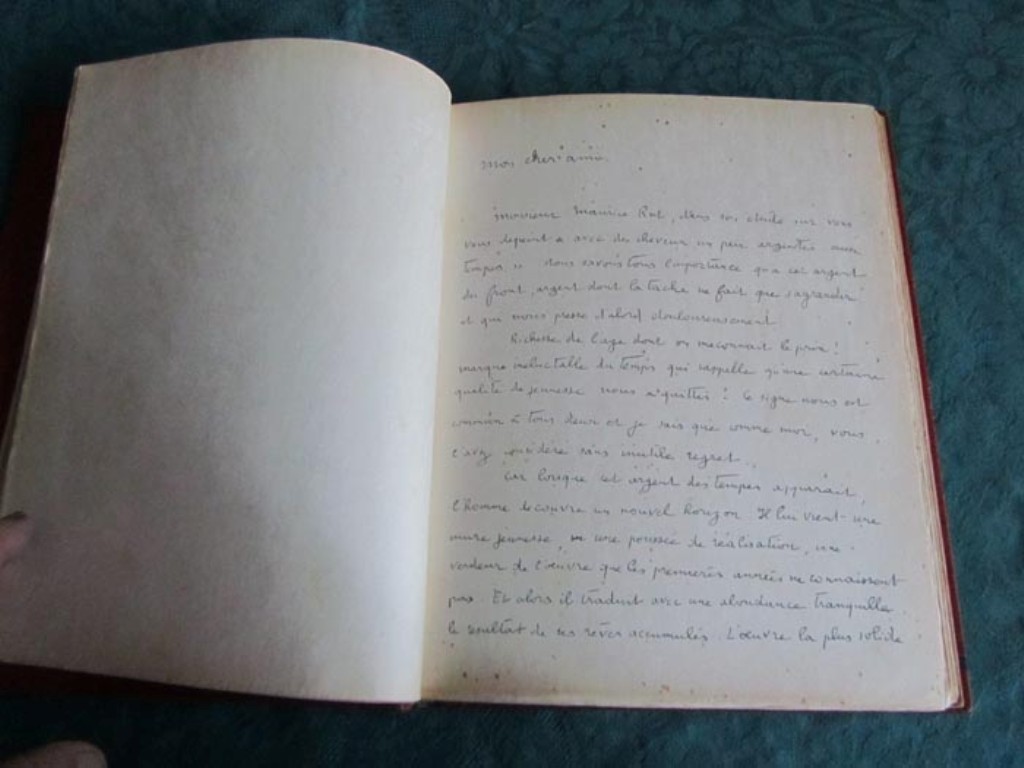 mon cher ami.
Monsieur Maurice Rat, dans son étude sur vous
vous dépeint « avec des cheveux un peu argentés aux
tempes ». Nous savons tous l'importance qu'a cet argent
du front, argent dont la tache ne fait que s'agrandir
et qui nous presse d'abord douloureusement
Richesse de l'age dont on méconnait le prix!
marque inéluctable du temps qui rappelle qu'une certaine
qualité de jeunesse nous a quittés! Ce signe nous est
commun à tous deux et je sais que comme moi, vous
l'avez considéré sans inutile regret.
Car lorsque cet argent des tempes apparait,
l'homme découvre un nouvel horizon. Il lui vient une
mure jeunesse, une poussée de réalisation, une
verdeur de l'œuvre que les premières années ne connaissent
pas. Et alors il traduit avec une abondance tranquille
le résultat de ses rêves accumulés. L'œuvre la plus solide